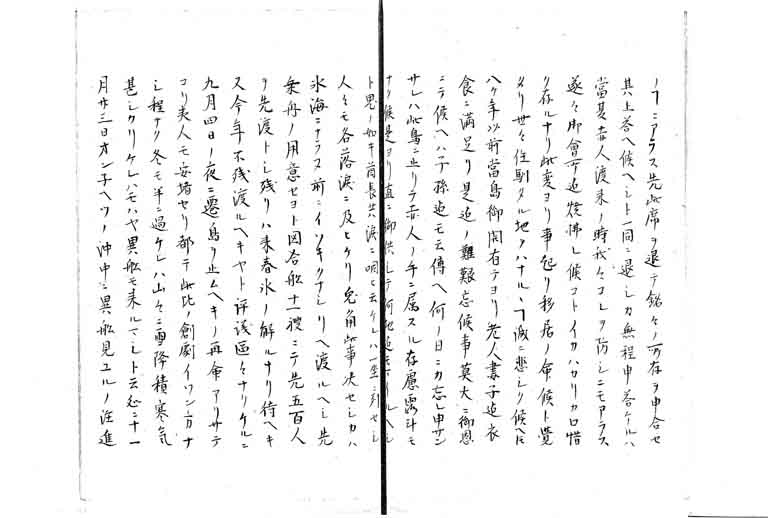 ノ丁ニアラス先此席ヲ退テ銘々ノ所存ヲ申合セ
其上答ヘ候ヘシト一同ニ退シカ無程申答ケルハ
當夏赤人渡来ノ時我々コレヲ防シニモアラス
遂々御會所迠焼拂レ候コトイカハカリカ口惜
ク存ルナリ此変ヨリ事起リ移居ノ命候ト覚
タリ世々住馴タル地ヲハナルヽ丁誠ニ悲シク候ヘ𪜈
八ケ年以前當島御開有テヨリ老人妻子迠衣
食ニ満足リ是迠ノ難艱忘候事莫大ニ御恩
ニテ候ヘハ子孫迠モ云傳ヘ何ノ日ニカ忘レ申サン
サレハ此島ニ止リテ赤人ノ手ニ属スル存慮露斗モ
ナク候是ヨリ直ニ御供シテ何地迠モマイルヘシ
ト思ノ如キ酋長共涙ニ咽ヒ云ケレハ一座ニ列セシ
人々モ各落涙ニ及ヒケリ兎角此事决セシカハ
氷海ニナラヌ前ニイソキクナシリヘ渡ルヘシ先
乗舟ノ用意セヨト図合船十一艘ニテ先五百人
ヲ先渡トシ残リハ来春氷ノ解ルナリ待ヘキ
又今年不残渡ルヘキヤト評議區々ナリケルニ
九月四日ノ夜ニ遷島ヲ止ムヘキノ再命アリサテ
コリ夷人モ安堵セリ都テ此比ノ倉劇イワン方ナ
シ程ナク冬モ半ニ過ケレハ山々ニ雪降積寒気
甚シクリケレハモハヤ異舩モ来ルマシト云処ニ十一
月廿三日オン子ヘツノ沖中ニ異舩見ユルノ注進